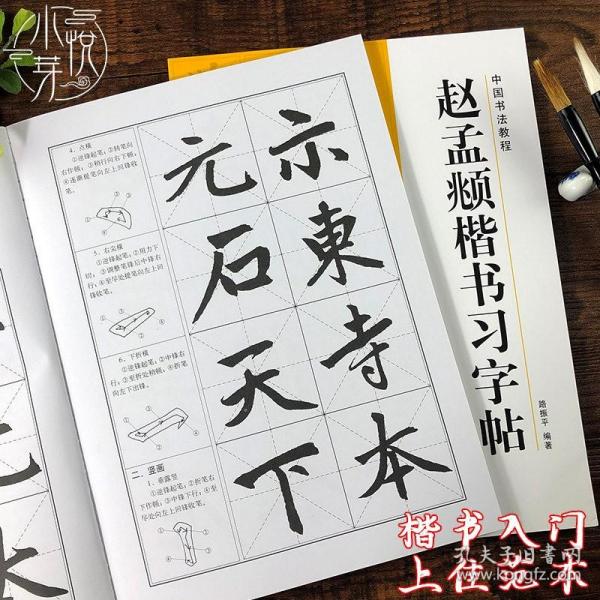 小芽悦
4. 点横
①逆锋起笔；②转笔向
右作顿；③稍行向右下顿，
④逐渐提笔向左上回锋收
笔。
5. 右尖横
①逆锋起笔；②用力下
切；③调整笔锋后中锋右
行；④至尽处提笔向左上回
锋收笔。
6. 下折横
①逆锋起笔；②中锋右
行；③至折处稍顿；④折笔
向左下出锋。
二、竖画
1. 垂露竖
①逆锋起笔；②折笔右
下作顿；③中锋下行；④至
尽处向左上回锋收笔。
元 示
石 東
天 寺
下 本
中国书法教程
赵孟頫楷书习字帖
路振平 编著
楷书入门
上佳范本
孔夫子旧书网
www.kongfz.com